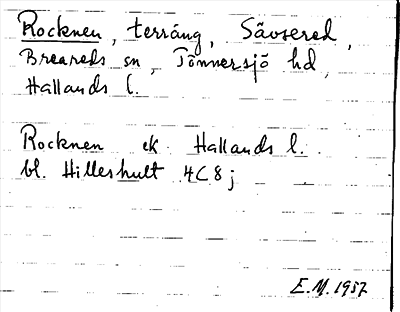 Rocknen, terräng, Sävsered,
Breareds sn, Tönnersjö hd,
Hallands l.
Rocknen ek Hallands l.
bl. Hilleshult 4C8j
E.M. 1957